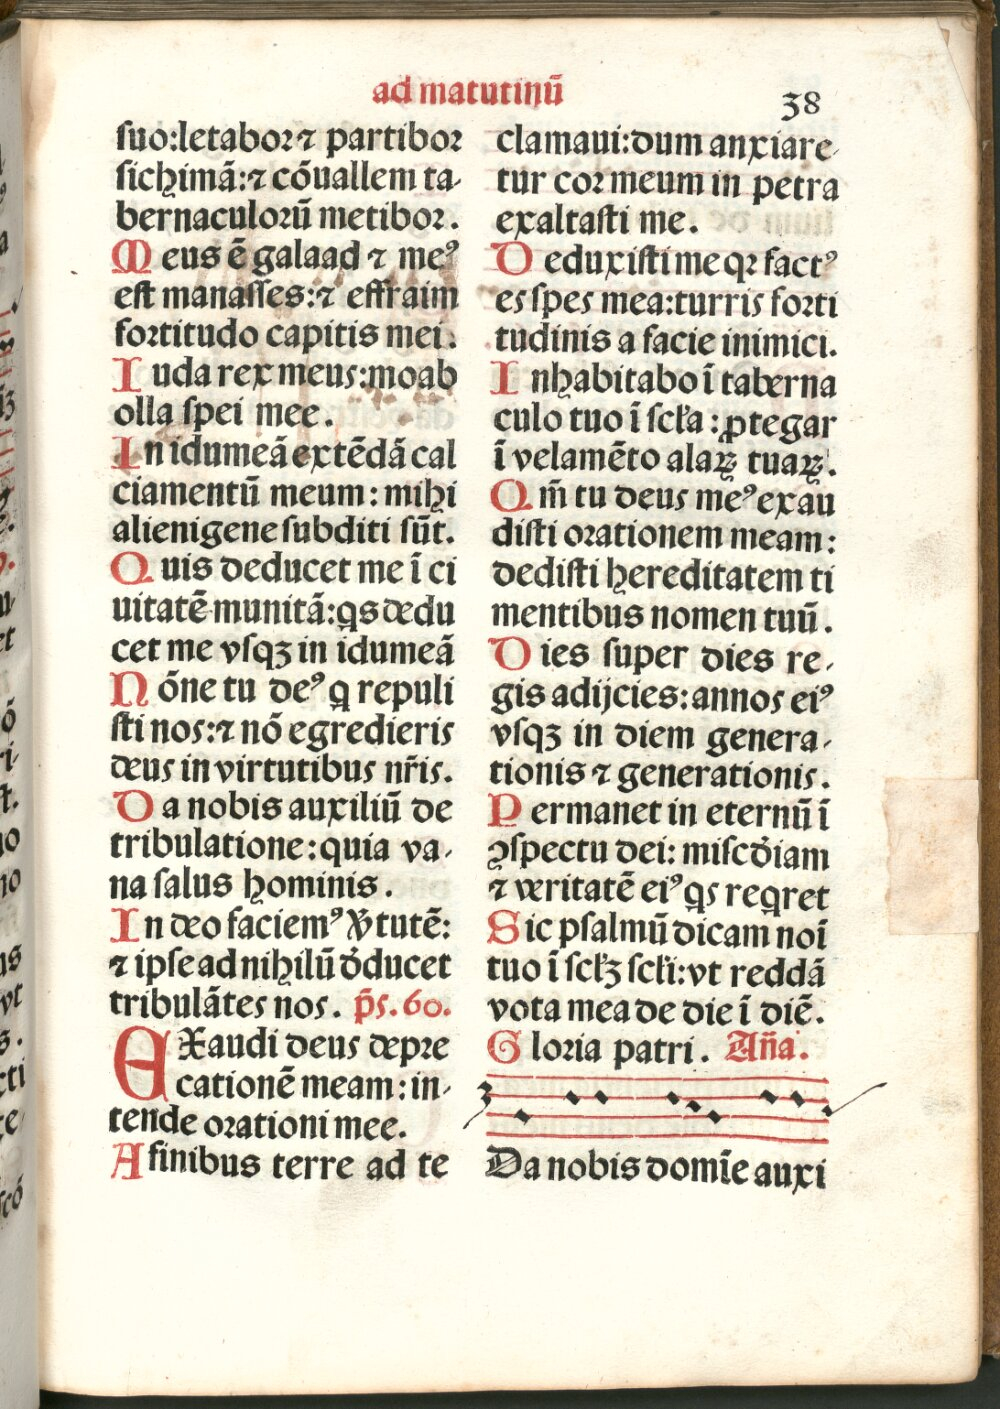 ad matutinū
38
suo:letabor ⁊ partibor
sichimā:⁊ cōuallem ta-
bernaculorū metibor.
Meus ē galaad ⁊ meꝰ
est manasses:⁊ effraim
fortitudo capitis mei.
Iuda rex meus:moab
olla spei mee.
In idumeā extēdā cal
ciamentū meum: mihi
alienigene subditi sūt.
Quis deducet me ī ci
uitatē munitā:qs dedu
cet me vsqꝫ in idumeā
Nōne tu deꝰ q repuli
sti nos:⁊ nō egredieris
deus in virtutibus nr̄is.
Da nobis auxiliū de
tribulatione:quia va-
na salus hominis.
In deo faciemꝰ v̓tutē:
⁊ ipse ad nihilū d̓ducet
tribulātes nos. p̄s.60.
EXaudi deus depre
cationē meam:in-
tende orationi mee.
A finibus terre ad te
clamaui:dum anxiare-
tur cor meum in petra
exaltasti me.
Deduxisti me qꝛ factꝰ
es spes mea:turris forti
tudinis a facie inimici.
Inhabitabo ī taberna
culo tuo ī scła:ꝓtegar
ī velamēto alaꝝ tuaꝝ.
Qm̄ tu deus meꝰ exau
disti orationem meam:
dedisti hereditatem ti
mentibus nomen tuū.
Dies super dies re-
gis adijcies:annos eiꝰ
vsqꝫ in diem genera-
tionis ⁊ generationis.
Permanet in eternū ī
ꝯspectu dei: miscd̓iam
⁊ veritatē eiꝰ qs reqret
Sic psalmū dicam noī
tuo ī scłꝫ scłi:vt reddā
vota mea de die ī diē.
Gloria patri. Añā.
Da nobis domīe auxi